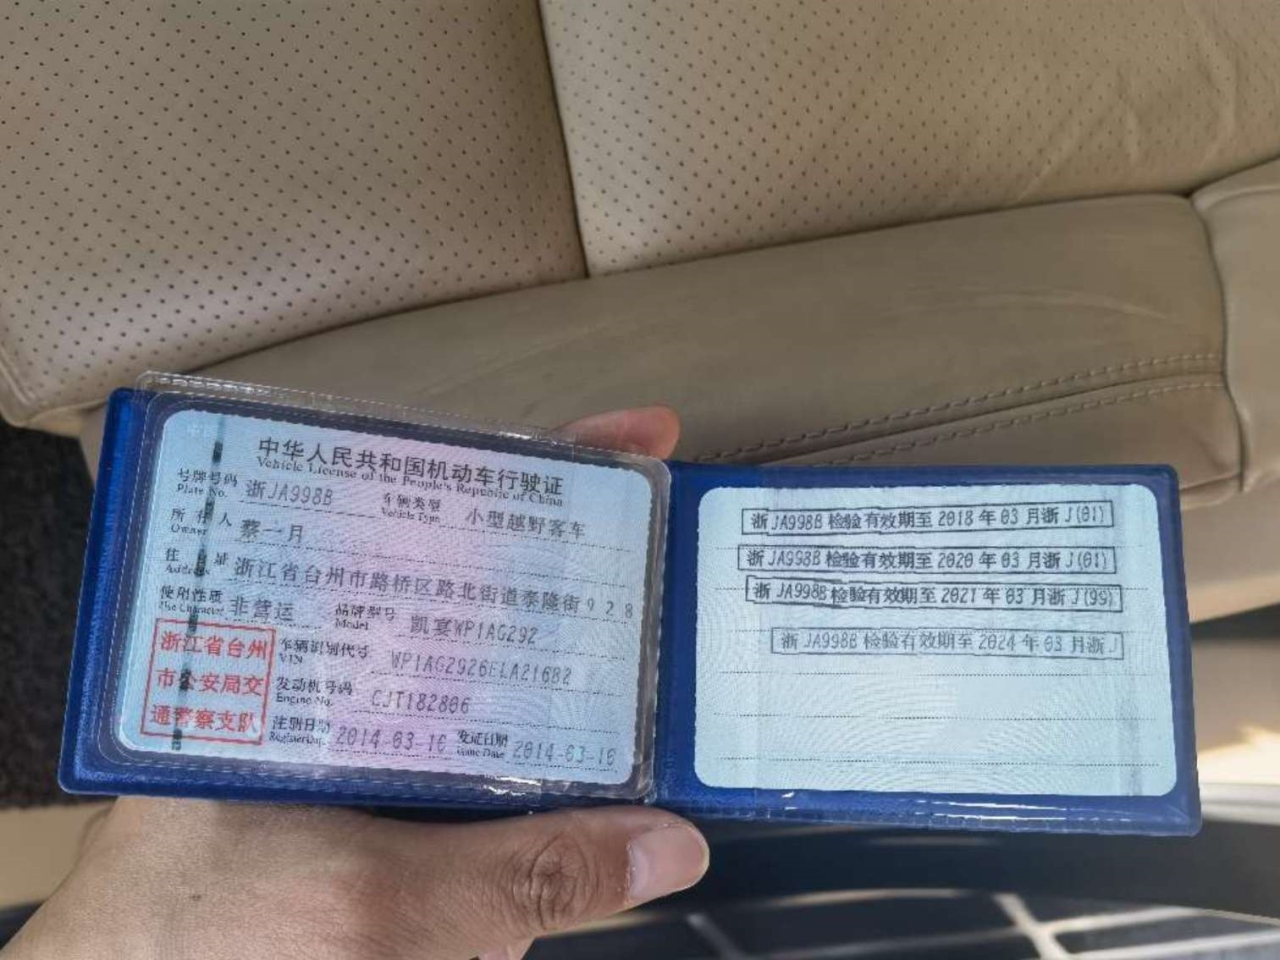 中华人民共和国机动车行驶证
Vehicle License of the People's Republic of China
号牌号码 浙JA998B 车辆类型 小型越野客车
Plate No. Vehicle Type
所有人 蔡一月
Owner
住址 浙江省台州市路桥区路北街道泰隆街928
Address
使用性质 非营运 品牌型号 凯宴WP1AG292
Use Character Model
浙江省台州
市公安局交
通警察支队
车辆识别代号 WP1AG2926ELA21682
VIN
发动机号码 CJT182806
Engine No.
注册日期 2014-03-10 发证日期 2014-03-10
Register Date Issue Date
浙JA998B检验有效期至2018年03月浙J(01)
浙JA998B检验有效期至2020年03月浙J(01)
浙JA998B检验有效期至2021年03月浙J(99)
浙JA998B检验有效期至2024年03月浙J